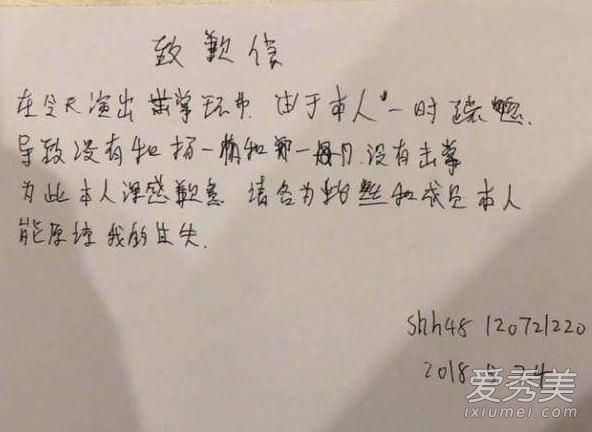 致歉信
在今天演出击掌环节.由于本人一时疏忽.
导致没有和杨一和 没有击掌
为此本人深感歉意 请各为粉丝和成员本人
能原谅我的过失.
shh48 120721220
2018 24
爱秀美
ixiumei.com